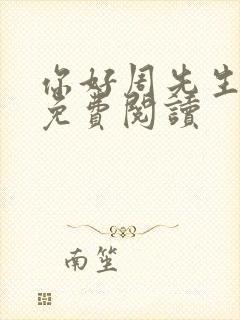 你好周先生
免費閱讀
南笙